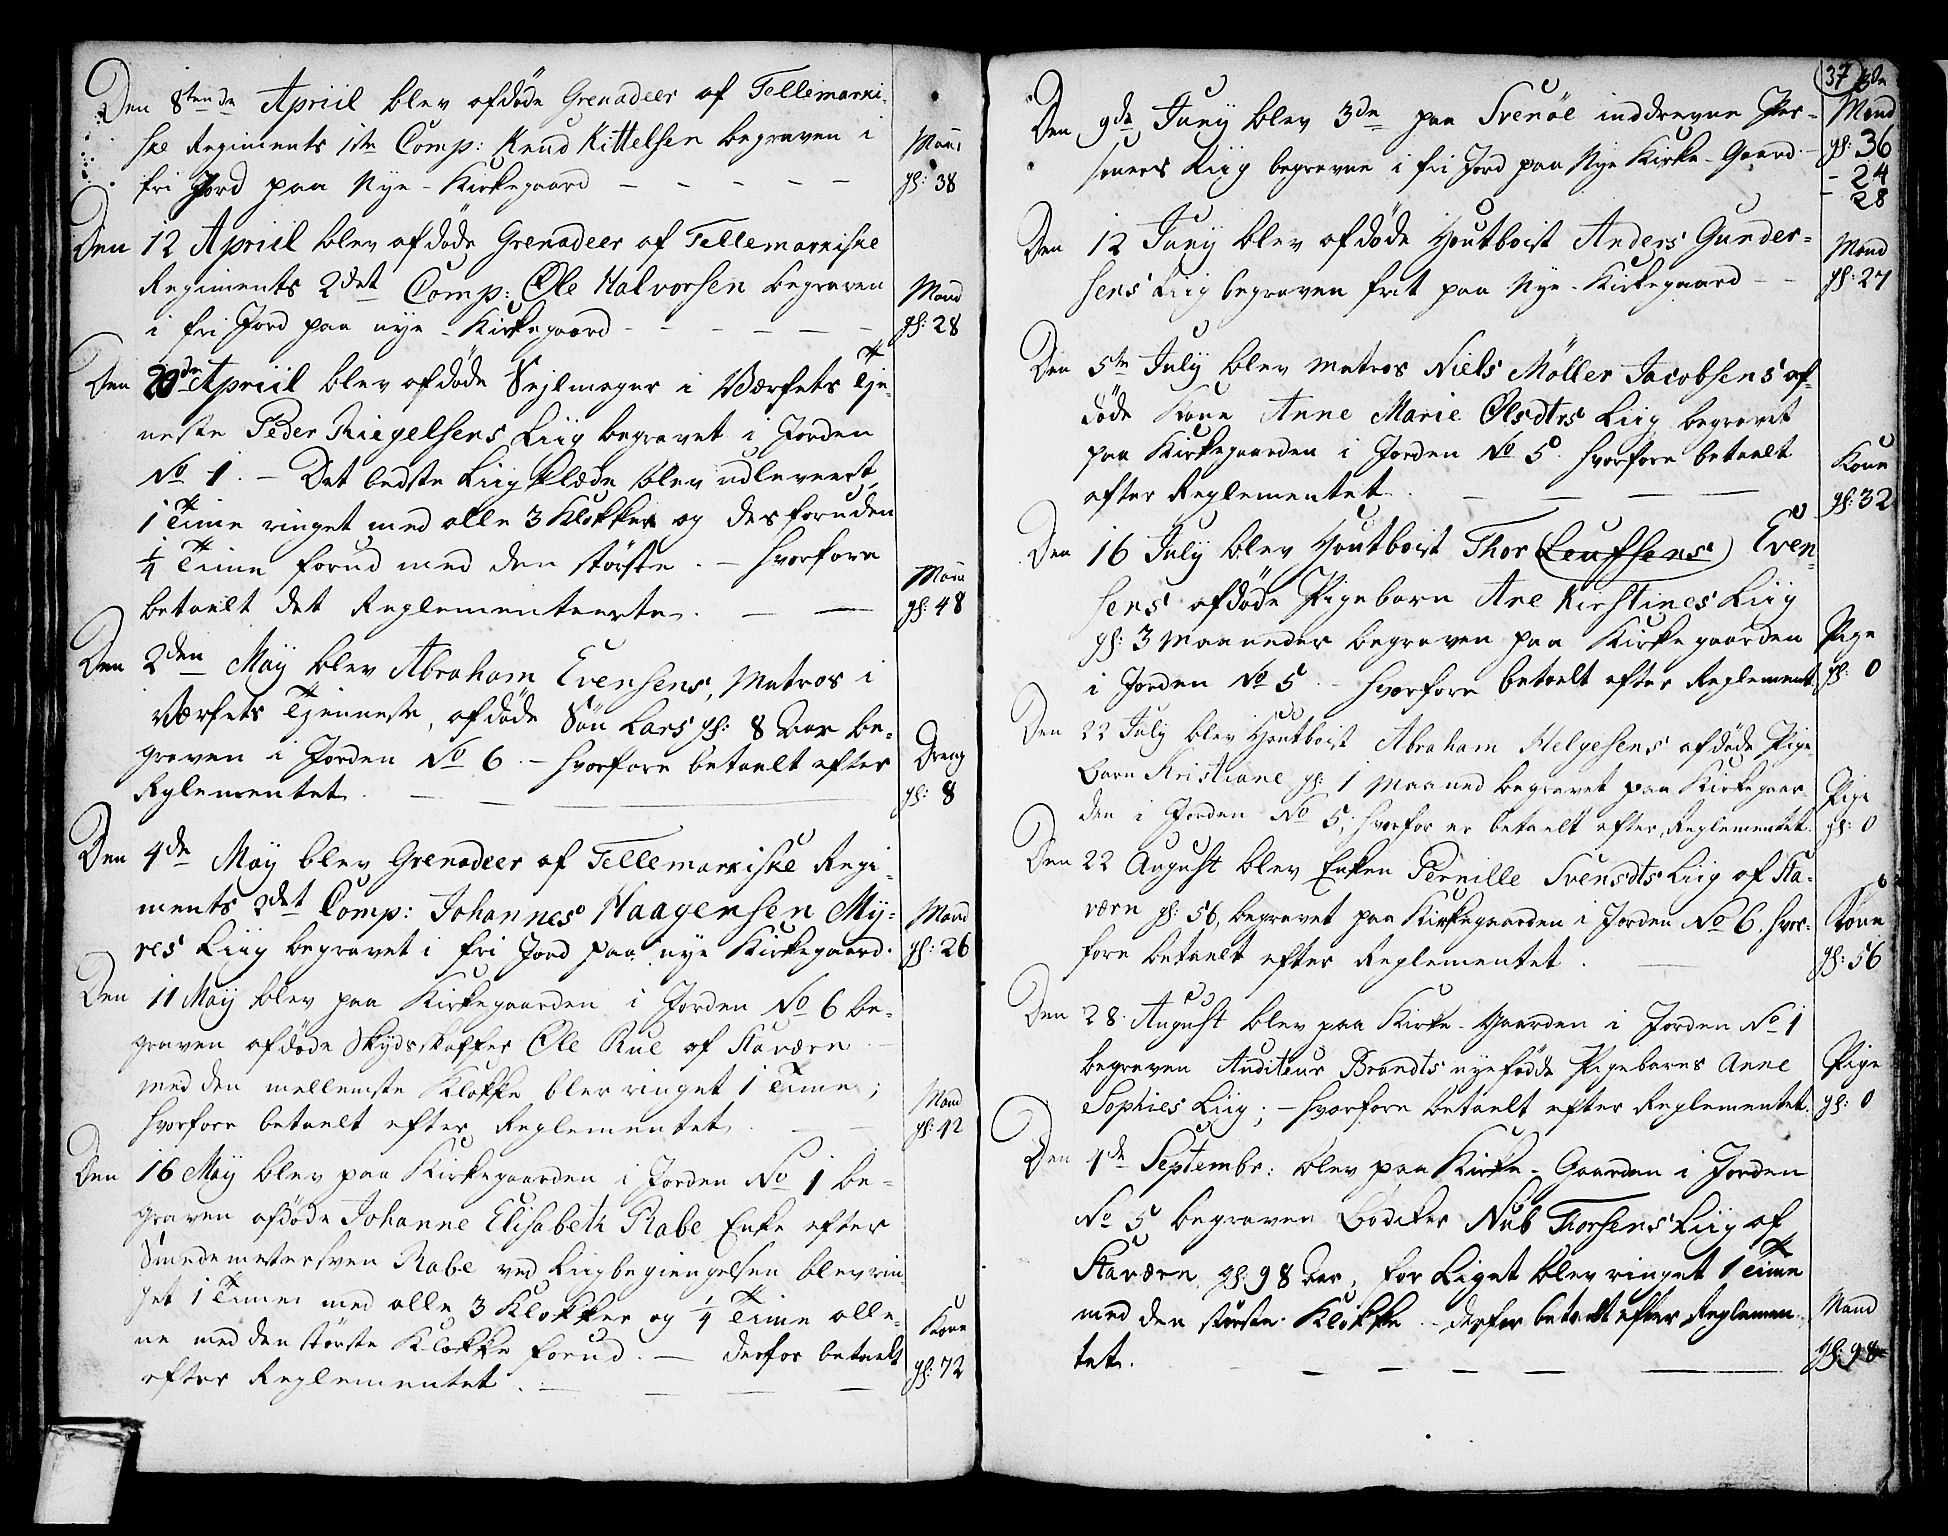 Den 8tende Apriil blev afdöde Grenadeer af Tellemarki-
ske Regiments 1ste Comp: Knud Kittelsen begraven i
fri Jord paa Nye-Kirkegaard — — — — —
Mand
gl: 38
Den 12 Apriil blev afdöde Grenadeer af Tellemarkiske
Regiments 2det Comp: Ole Halvorsen begraven
i fri Jord paa nye-Kirkegaard — — — — —
Mand
gl: 28
Den 20de Apriil blev afdöde Sejlmager i Værfets Tje-
neste Peder Riegelsens Liig begravet i Jorden
No 1. — Det bedste Liigklæde blev udleveert,
1 Time ringet med alle 3 Klokker og desforuden
1/4 Time forud med den störste. — hvorfore
betaelt det Reglementeerte. — —
Mand
gl: 48
Den 2den May blev Abraham Evensens, Matros i
Værfets Tjenneste, afdöde Sön Lars gl: 8 Aar be-
graven i Jorden No 6. — hvorfore betaelt efter
Reglementet. — — —
Dreng
gl: 8
Den 4de May blev Grenadeer af Tellemarkiske Regi-
ments 2det Comp: Johannes Haagensen My-
res Liig begravet i fri Jord paa nye Kirkegaard.
Mand
gl: 26
Den 11 May blev paa Kirkegaarden i Jorden No 6 be-
graven afdöde Skydsskaffer Ole Rue af Staværn
med den mellemste Klokke blev ringet 1 Time;
hvorfore betaelt efter Reglementet. — —
Mand
gl: 42
Den 16 May blev paa Kirkegaarden i Jorden No 1 be-
graven afdöde Johanne Elisabeth Rabe Enke efter
Smedemestersven Rabe ved Liigbegiengelsen blev rin
get 1 Time med alle 3 Klokker og 1/4 Time alle-
ne med den störste Klokke forud. — derfor betaelt
efter Reglementet. — — — —
Kone
gl: 72
37
Den 9de Juny blev 3de paa Svenöe inddrevne Per-
soners Liig begravne i fri Jord paa Nye Kirke-Gaard.
3de
Mænd
gl: 36
- 24
- 28
Den 12 Juny blev afdöde Houtboist Anders Gunder-
sens Liig begraven frit paa Nye-Kirkegaard — —
Mand
gl: 27
Den 5te July blev Matros Niels Möller Jacobsens af-
döde Kone Anne Marie Olsdtrs Liig begravet
paa Kirkegaarden i Jorden No 5. hvorfore betaelt
efter Reglementet. — — — —
Kone
gl: 32
Den 16 July blev Houtboist Thor (Leufsens) Even
sens afdöde Pigebarn Ane Kirstines Liig
gl: 3 Maaneder begraven paa Kirkegaarden
i Jorden No 5. — hvorfore betaelt efter Reglement.
Pige
gl: 0
Den 22 July blev Houtboist Abraham Helgesens afdöde Pige-
barn Kristiane gl: 1 Maaned begravet paa Kirkegaar-
den i Jorden No 5; hvorfor er betaelt efter Reglementet.
Pige
gl: 0
Den 22 August blev Enken Pernille Svensdts Liig af Sta-
værn gl: 56, begravet paa Kirkegaarden i Jorden No 6. hvor-
fore betaelt efter Reglementet. —
Kone
gl: 56
Den 28. August blev paa Kirke-Gaarden i Jorden No 1
begraven Auditeur Brandts nyefödde Pigebarns Anne
Sophies Liig; — hvorfore betaelt efter Reglementet.
Pige
gl: 0
Den 4de Septembr: blev paa Kirke-Gaarden i Jorden
No 5 begraven Bödiker Nub Thorsens Liig af
Staværn gl: 98 Aar, for Liget blev ringet 1 Time
med den störste Klokke. — derfor betaelt efter Reglemen-
tet. — — — — —
Mand
gl: 98